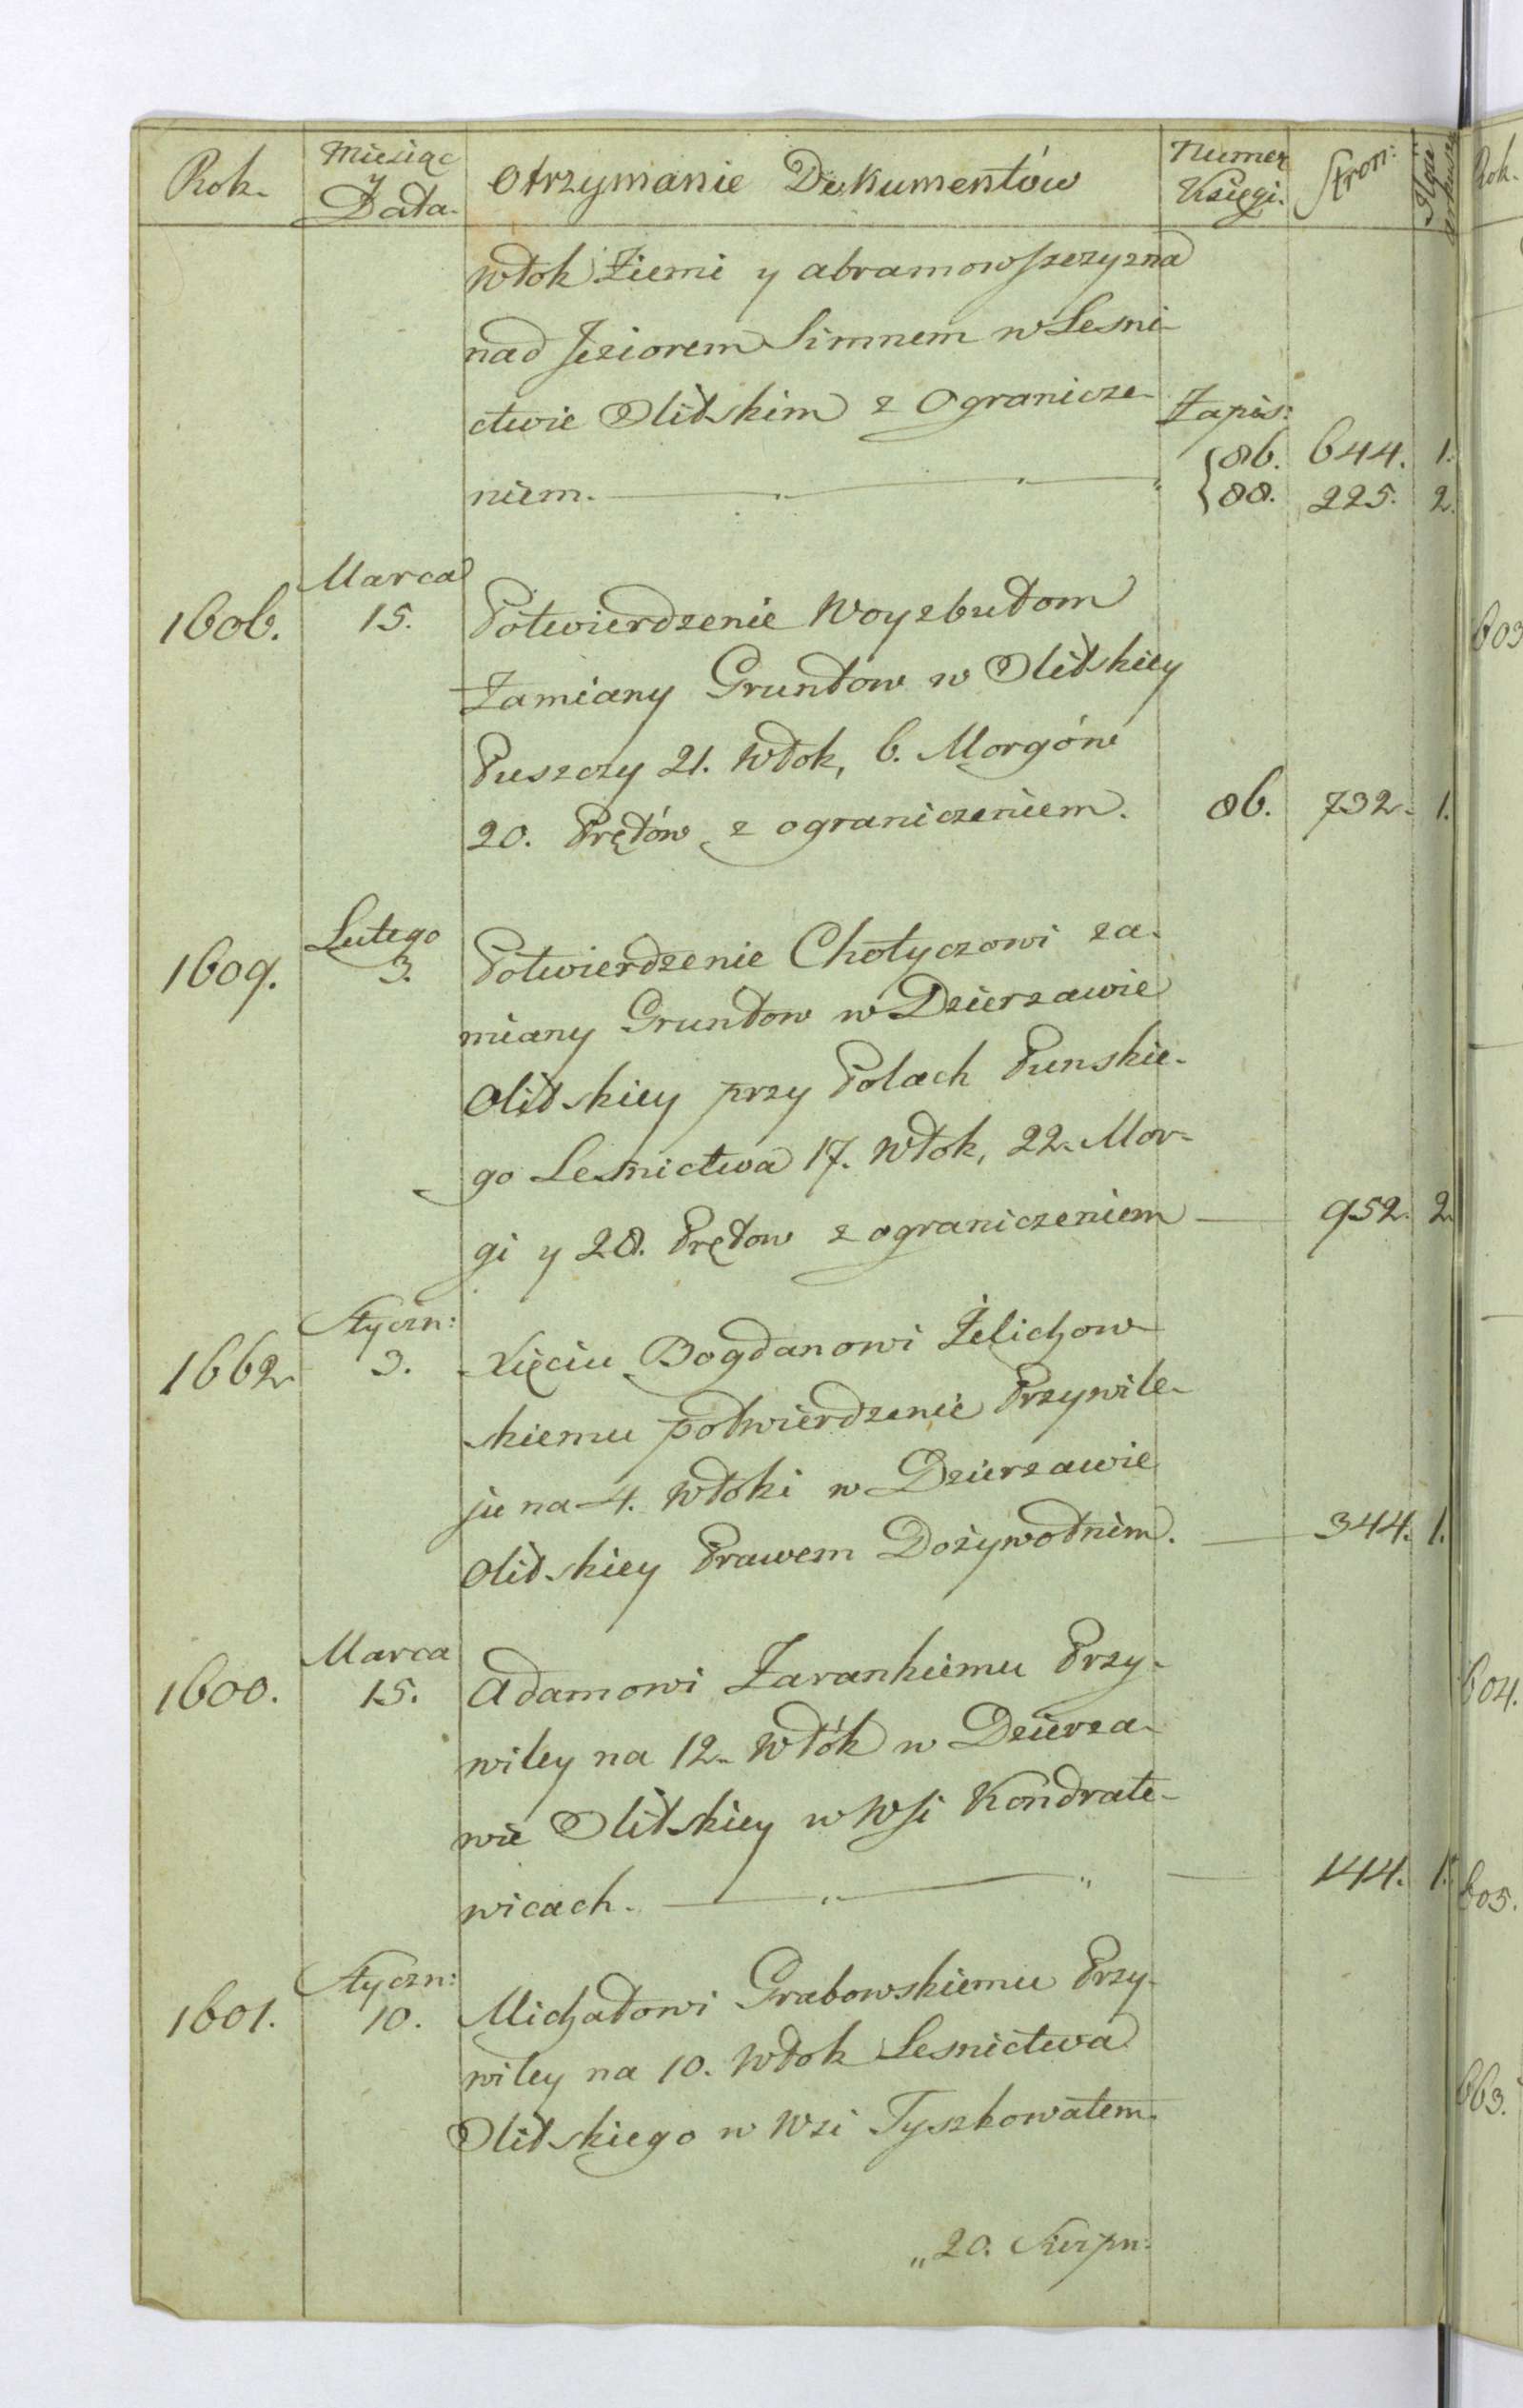 Rok. Miesiąc y Data. Otrzymanie Dokumentów Numer Księgi. Stron: Ilość arkuszy
włok Ziemi y abramowszczyzna
nad Jeziorem Simnem w Leśni-
ctwie Olitskim z Ogranicze- Zapis:
niem. {86. 644. 1.
{88. 225. 2.
1606. Marca 15. Potwierdzenie Woyzbutom
Zamiany Gruntow w Olitskiey
Puszczy 21. Włok, 6. Morgów
20. Prętów z ograniczeniem. 86. 732. 1.
1609. Lutego 3. Potwierdzenie Chotyczowi za-
miany Gruntow w Dzierzawie
Olitskiey przy Polach Punskie-
go Leśnictwa 17. Włok, 22. Mor-
gi y 28. Prętow z ograniczeniem — 952. 2.
1662. Styczn: 3. Xięciu Bogdanowi Żelichow-
skiemu potwierdzenie Przywile-
ju na 4. Włoki w Dzierzawie
Olitskiey Prawem Dożywotnim. — 344. 1.
1600. Marca 15. Adamowi Zarankiemu Przy-
wiley na 12. Włók w Dzierza-
wie Olitskiey w Wsi Kondrate-
wicach. — 144. 1.
1601. Styczn: 10. Michałowi Grabowskiemu Przy-
wiley na 10. Włok Lesnictwa
Olitskiego w Wsi Tyszkowatem.
„20. Sierpn:
Rok.
603
604.
605.
663.